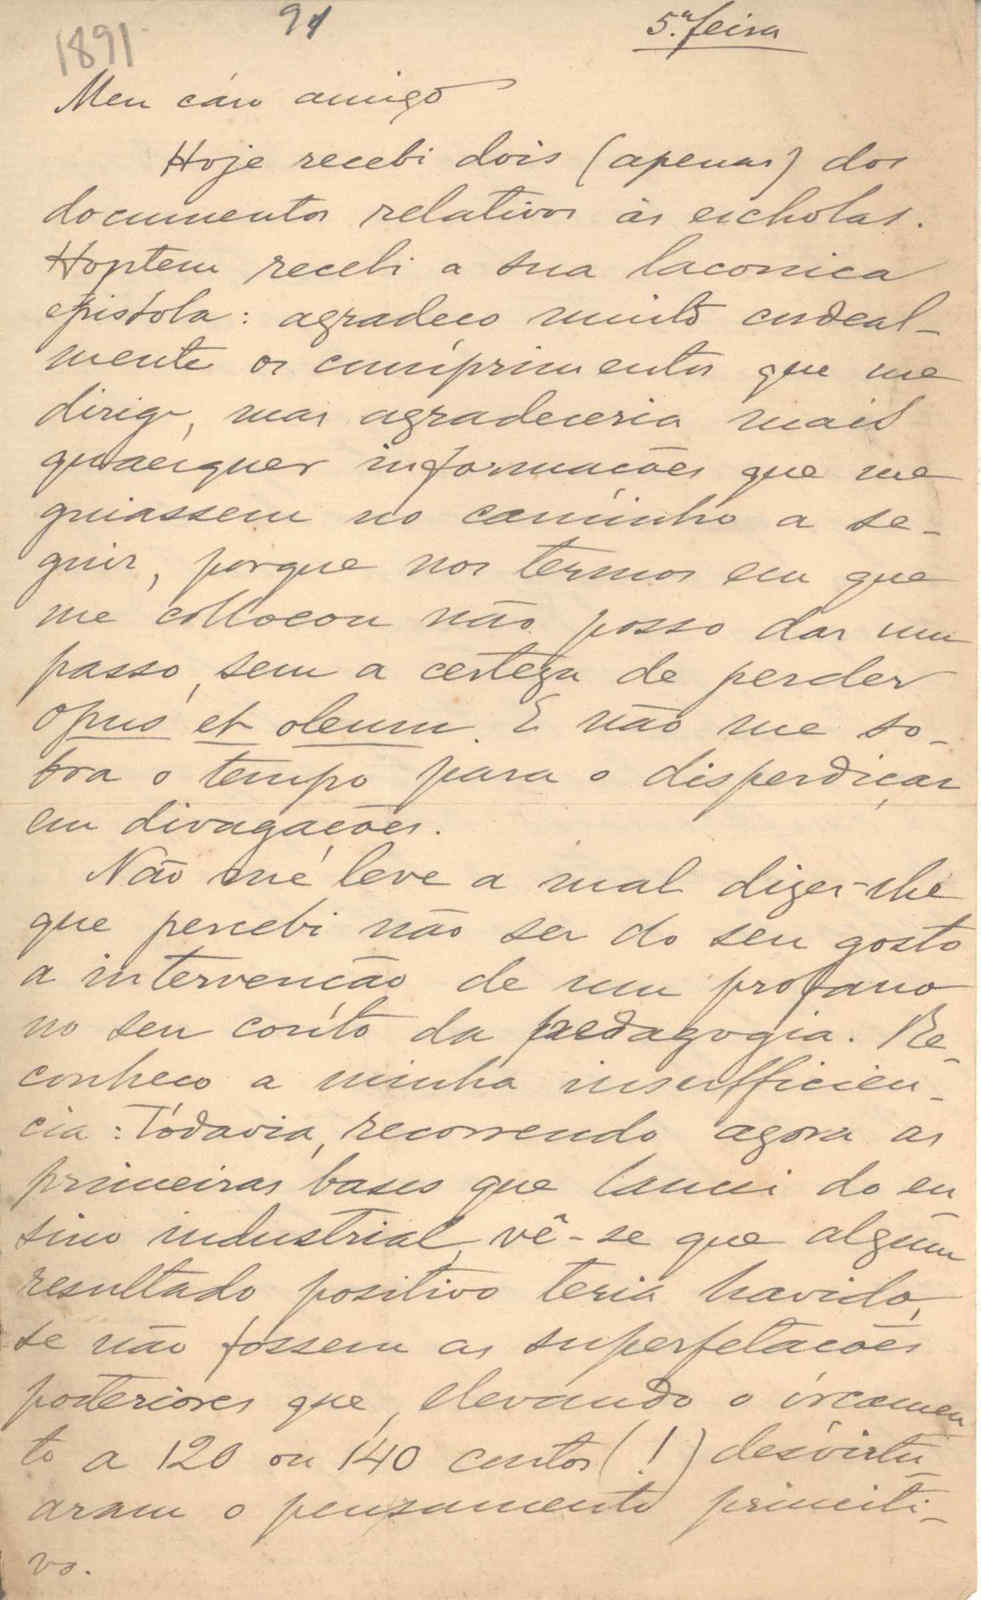 1891 91 5.ª feira
Meu cáro amigo
Hoje recebi dois (apenas) dos
documentos relativos ás escholas.
Hontem recebi a sua laconica
epistola: agradeço muito cordeal-
mente os cumprimentos que me
dirige, mas agradeceria mais
quaesquer informações que me
guiassem no caminho a se-
guir, porque nos termos em que
me collocou não posso dar um
passo, sem a certeza de perder
opus et oleum. E não me so-
bra o tempo para o disperdiçar
em divagações.
Não me leve a mal dizer-lhe
que percebi não ser do seu gosto
a intervenção de um profano
no seu couto da pedagogia. Re-
conheço a minha insufficien-
cia: Todavia, recorrendo agora as
primeiras bases que lancei do en
sino industrial, vê-se que algum
resultado positivo teria havido,
se não fossem as superfetacões
posteriores que, elevando o orçamen
to a 120 ou 140 contos (!) desvirtu
aram o pensamento primiti-
vo.